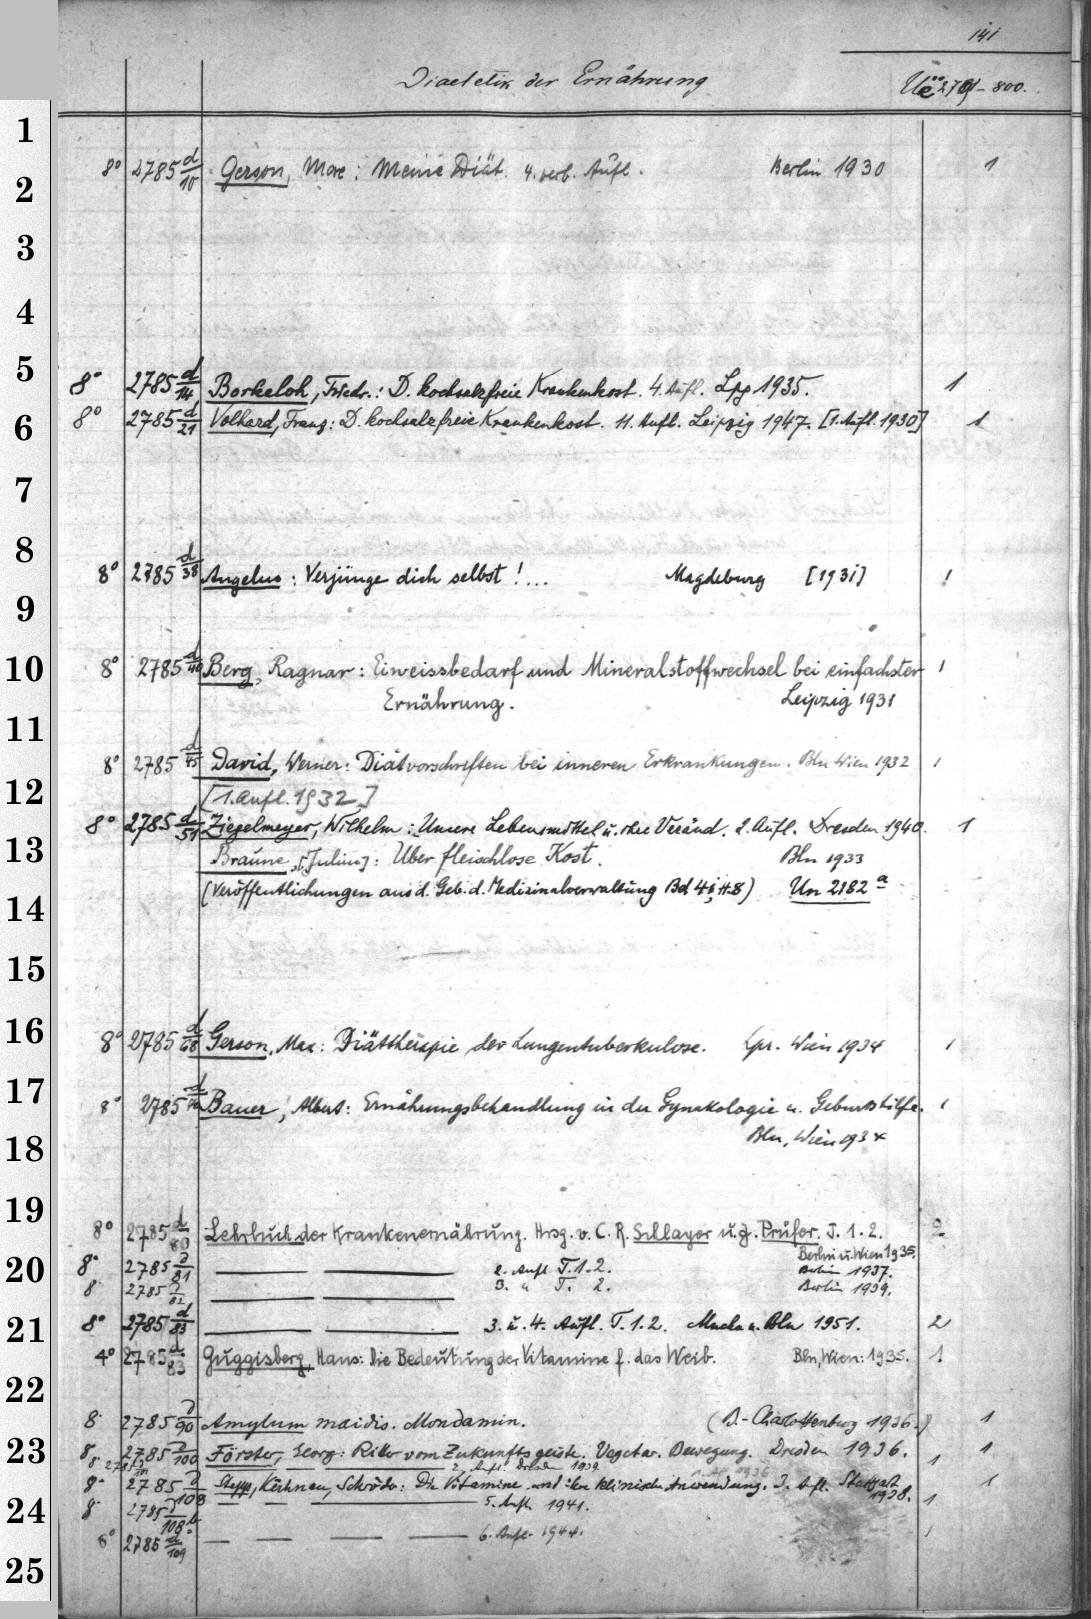 141
Diaetetik der Ernährung Uë 2761-800.
1
8° 2785 d/10 Gerson, Max: Meine Diät. 4. verb. Aufl. Berlin 1930 1
2
3
4
5
8° 2785 d/14 Borkeloh, Friedr.: D. kochsalzfreie Krankenkost. 4. Aufl. Lpg 1935. 1
6
8° 2785 d/21 Volhard, Franz: D. kochsalzfreie Krankenkost. 11. Aufl. Leipzig 1947. [1. Aufl. 1930] 1
7
8
8° 2785 d/38 Angelus: Verjünge dich selbst!... Magdeburg [1931] 1
9
10
8° 2785 d/40 Berg, Ragnar: Eiweissbedarf und Mineralstoffwechsel bei einfachster 1
Ernährung. Leipzig 1931
11
8° 2785 d/45 David, Werner: Diätvorschriften bei inneren Erkrankungen. Bln Wien 1932 1
12
[1. Aufl. 1932]
8° 2785 d/51 Ziegelmeyer, Wilhelm: Unsere Lebensmittel u. ihre Veränd. 2. Aufl. Dresden 1940. 1
13
Braune, [Julius]: Über fleischlose Kost. Bln 1933
(Veröffentlichungen aus d. Geb. d. Medizinalverwaltung Bd 41, H.8) Un 2182 a
14
15
16
8° 2785 d/68 Gerson, Max: Diättherapie der Lungentuberkulose. Lpz. Wien 1934 1
17
8° 2785 d/70 Bauer, Albert: Ernährungsbehandlung in der Gynäkologie u. Geburtshilfe. 1
18
Bln, Wien 1934
19
8° 2785 d/80 Lehrbuch der Krankenernährung. Hrsg. v. C. R. Schlayer u. J. Prüfer. T. 1. 2. 2
Berlin u. Wien 1935.
20
8° 2785 d/81 2. Aufl. T. 1. 2. Berlin 1937.
8° 2785 d/82 3. " T. 2. Berlin 1939.
21
8° 2785 d/83 3. u. 4. Aufl. T. 1. 2. Bln 1951. 2
4° 2785 d/85 Guggisberg, Hans: Die Bedeutung der Vitamine f. das Weib. Bln, Wien: 1935. 1
22
8° 2785 d/90 Amylum maidis. Mondamin. (B.-Charlottenburg 1936.) 1
23
8° 2785 d/100 Förster, Georg: Ritter vom Zukunftsgeiste. Vegetar. Bewegung. Dresden 1936. 1
2. Aufl. Dresden 1939 1
8° 2785 d/108 Stepp, Kühnau, Schröder: Die Vitamine und ihre klinische Anwendung. 3. Aufl. Stuttgart 1938. 1
24
8° 2785 d/108 b 5. Aufl. 1941. 1
8° 2785 d/109 6. Aufl. 1944. 1
25